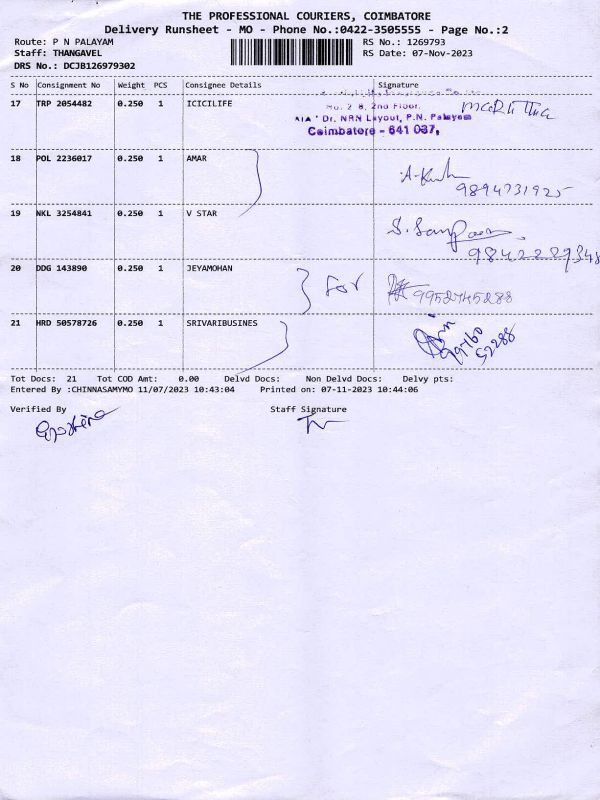 THE PROFESSIONAL COURIERS, COIMBATORE
Delivery Runsheet - MO - Phone No.:0422-3505555 - Page No.:2
Route: P N PALAYAM
RS No.: 1269793
Staff: THANGAVEL
RS Date: 07-Nov-2023
DRS No.: DCJB126979302
S No Consignment No Weight PCS Consignee Details Signature
17 TRP 2054482 0.250 1 ICICILIFE
No. 2 8, 2nd Floor,
"AIA" Dr. NRN Layout, P.N. Palayam
Coimbatore - 641 037,
18 POL 2236017 0.250 1 AMAR
9894731925
19 NKL 3254841 0.250 1 V STAR
20 DDG 143890 0.250 1 JEYAMOHAN
For
9952745288
21 HRD 50578726 0.250 1 SRIVARIBUSINES
99760
52288
Tot Docs: 21 Tot COD Amt: 0.00 Delvd Docs: Non Delvd Docs: Delvy pts:
Entered By :CHINNASAMYMO 11/07/2023 10:43:04 Printed on: 07-11-2023 10:44:06
Verified By Staff Signature